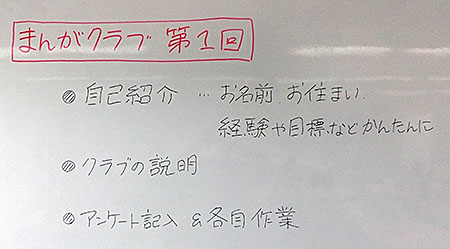 まんがクラブ 第1回
◎ 自己紹介 … お名前、お住まい、
経験や目標などかんたんに
◎ クラブの説明
◎ アンケート記入 & 各自作業